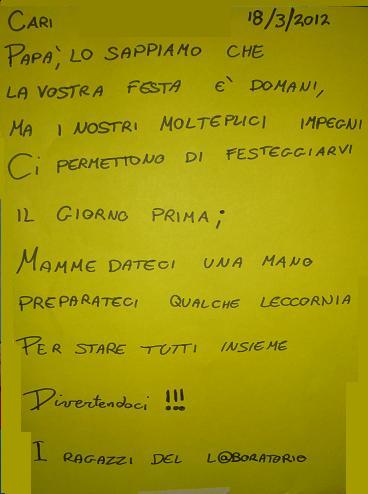 CARI 18/3/2012
PAPA', LO SAPPIAMO CHE
LA VOSTRA FESTA E' DOMANI,
MA I NOSTRI MOLTEPLICI IMPEGNI
Ci PERMETTONO DI FESTEGGIARVI
IL GIORNO PRIMA;
MAMME DATECI UNA MANO
PREPARATECI QUALCHE LECCORNIA
PER STARE TUTTI INSIEME
Divertendoci !!!
I RAGAZZI DEL L@BORATORIO